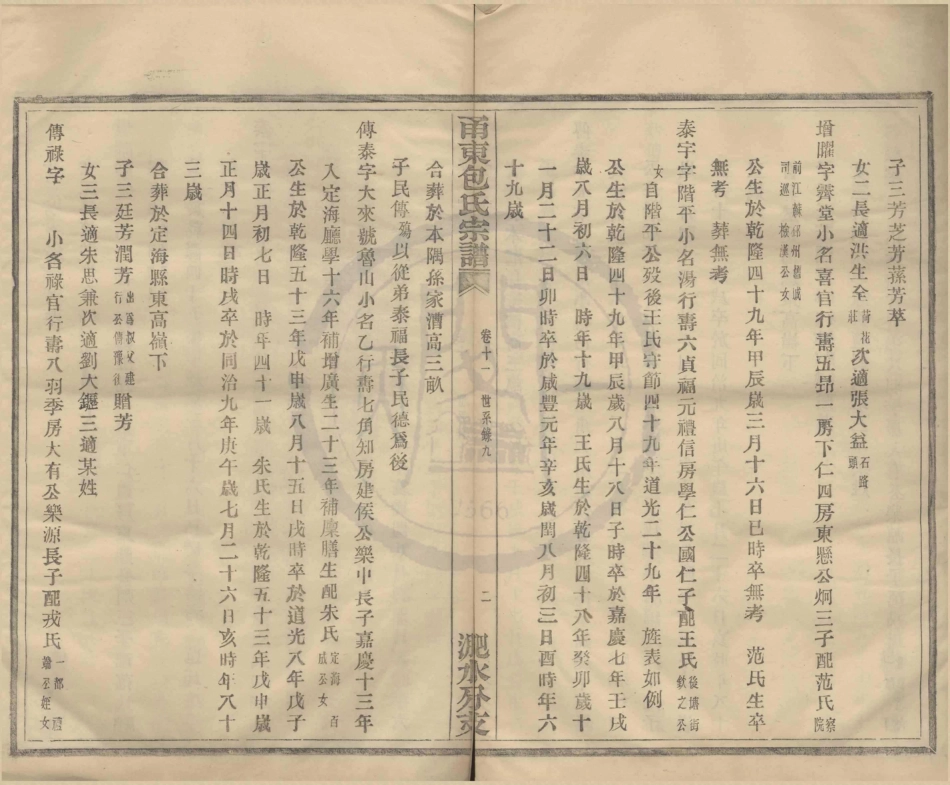 子三芳芝芳蓀芳萃
女二長適洪生全荷花莊次適張大益石路頭
增曜字霽堂小名喜官行壽五昻一房下仁四房東懸公炯三子配范氏察院
前江蘇邳州舊城司巡檢漢公女
公生於乾隆四十九年甲辰歲三月十六日巳時卒無考　范氏生卒
無考　葬無考
泰宇字階平小名湯行壽六貞福元禮信房學仁公國仁子配王氏後塘街欽之公
女自階平公歿後王氏守節四十九年道光二十九年　旌表如例
公生於乾隆四十九年甲辰歲八月十八日子時卒於嘉慶七年壬戌
歲八月初六日　時年十九歲　王氏生於乾隆四十八年癸卯歲十
一月二十二日卯時卒於咸豐元年辛亥歲閏八月初三日酉時年六
十九歲
甬東包氏宗譜　卷十一　世系錄九　二
合葬於本隅孫家漕高三畝
子民傳殤以從弟泰福長子民德爲後
傳泰字大來號魯山小名乙行壽七角知房建侯公樂中長子嘉慶十三年
入定海廳學十六年補增廣生二十三年補廩膳生配朱氏定海百成公女
公生於乾隆五十三年戊申歲八月十五日戌時卒於道光八年戊子
歲正月初七日　時年四十一歲　朱氏生於乾隆五十三年戊申歲
正月十四日時戌卒於同治九年庚午歲七月二十六日亥時年八十
三歲
合葬於定海縣東高嶺下
子三廷芳潤芳出爲叔父建行公傳祿後贈芳
女三長適朱思兼次適劉大鏂三適某姓
傳祿字　小名祿官行壽八羽季房大有公樂源長子配戎氏一都